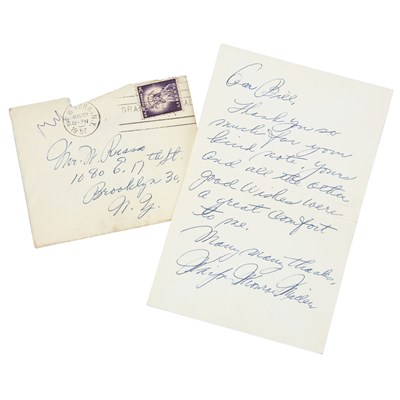 1957
Mr. W. Russo
1080 E. 17th St.
Brooklyn 30,
N. Y.
Dear Bill,
Thank you so
much for your
kind note yours
and all the other
good wishes were
a great comfort
to me.
Many many thanks,
Monroe Miller